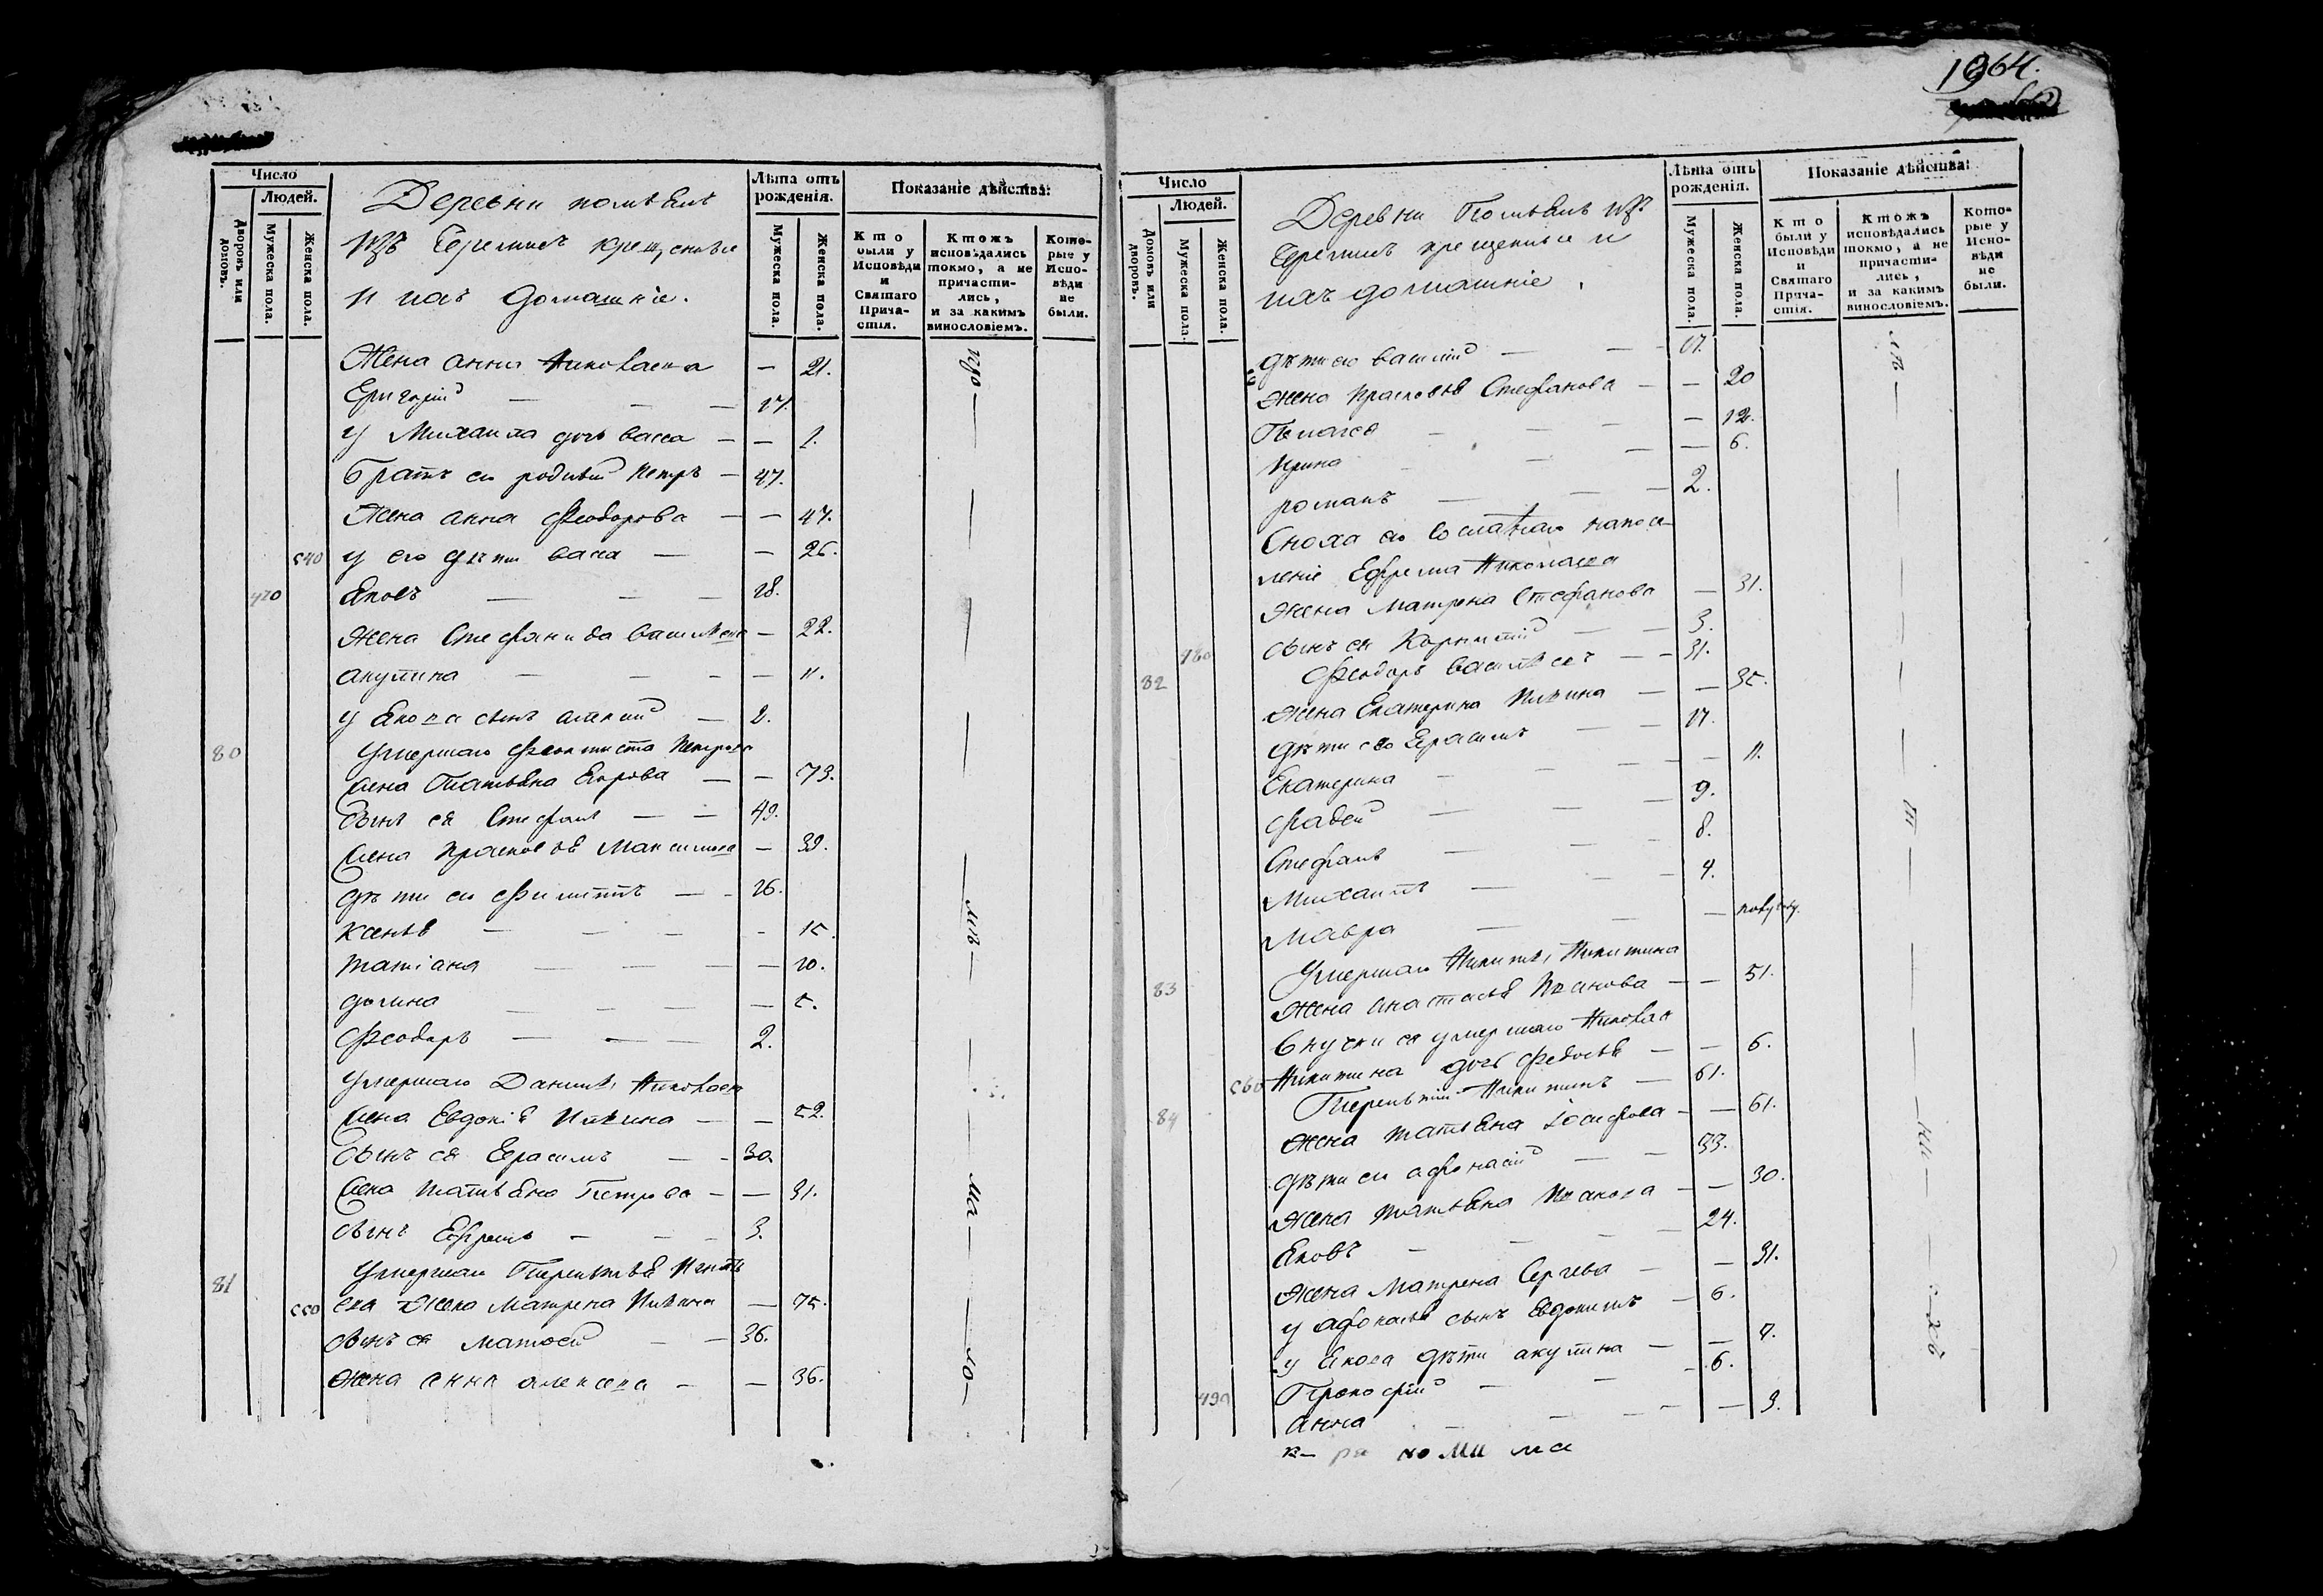 Число
Людей.
Дворовъ или домовъ.
Мужеска пола.
Женска пола.
Деревни
изъ Черемисъ крещеные
и ихъ домашніе.
Лѣта отъ рожденія.
Мужеска пола.
Женска пола.
Показаніе дѣйства:
Кто были у Исповѣди и Святаго Причастія.
Ктожъ исповѣдались токмо, а не причастились, и за какимъ винословіемъ.
Которые у Исповѣди не были.
Жена Анна Николаева — 21.
Григорій — 17.
у Михаила дочь Васса — 1.
Братъ его родный Петръ — 47.
Жена Анна Феодорова — 47.
540 у его дѣти Васса — 26.
470 Яковъ — 18.
Жена Стефанида — 22.
Акулина — 11.
у Якова сынъ Алексій — 2.
80 Умершаго Феоктиста Петрова
жена Татьяна Егорова — 73.
Сынъ ея Стефанъ — 49.
жена Максимова — 39.
дѣти его Филиппъ — 16.
Ксенья — 15.
Татіана — 10.
— 5.
Феодоръ — 2.
Умершаго Данила Николаева
жена Евдокія Ильина — 52.
Сынъ ея Герасимъ — 30.
жена Татьяна Петрова — 31.
сынъ Ефремъ — 3.
81 Умершаго Терентья
550 ева жена Матрена Ильина — 75.
сынъ ея Матвей — 36.
Жена Анна — 36.
1964.
Число
Людей.
Домовъ или дворовъ.
Мужеска пола.
Женска пола.
Деревни изъ
Черемисъ крещеные и
ихъ домашніе
Лѣта отъ рожденія.
Мужеска пола.
Женска пола.
Показаніе дѣйства:
Кто были у Исповѣди и Святаго Причастія.
Ктожъ исповѣдались токмо, а не причастились, и за какимъ винословіемъ.
Которые у Исповѣди не были.
дѣти его Василій — 17.
жена Стефанова — 20
Пелагея — 12.
Ирина — 6.
Романъ — 2.
Сноха его сосланаго на посе-
леніе Ефрема Николаева
жена Матрена Стефанова — 31.
480 сынъ ея — 3.
82 Феодоръ — 31.
жена Екатерина Ильина — 35.
дѣти его Герасимъ — 17.
Екатерина — 11.
Фадей — 9.
Стефанъ — 8.
Михаилъ — 4.
Мавра — полугоду.
83 Умершаго Никиты Никитина
жена Анастасья Иванова — 51.
Внучки ея умершаго
560 Никитина дочь Федосья — 6.
84 Терентій Никитинъ — 61.
жена Татьяна Іосифова — 61.
дѣти его Афонасій — 33.
жена Татьяна Иванова — 30.
Яковъ — 24.
жена Матрена Сергева — 31.
у Афонасья сынъ Евдокимъ — 6.
у Якова дѣти Акулина — 7.
490 Прокофій — 6.
Анна — 3.